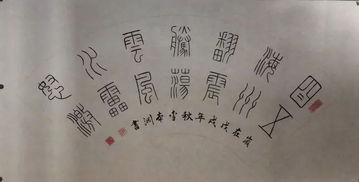 四海翻騰雲水怒
五洲震蕩風雷激
歲在戊戌年秋書